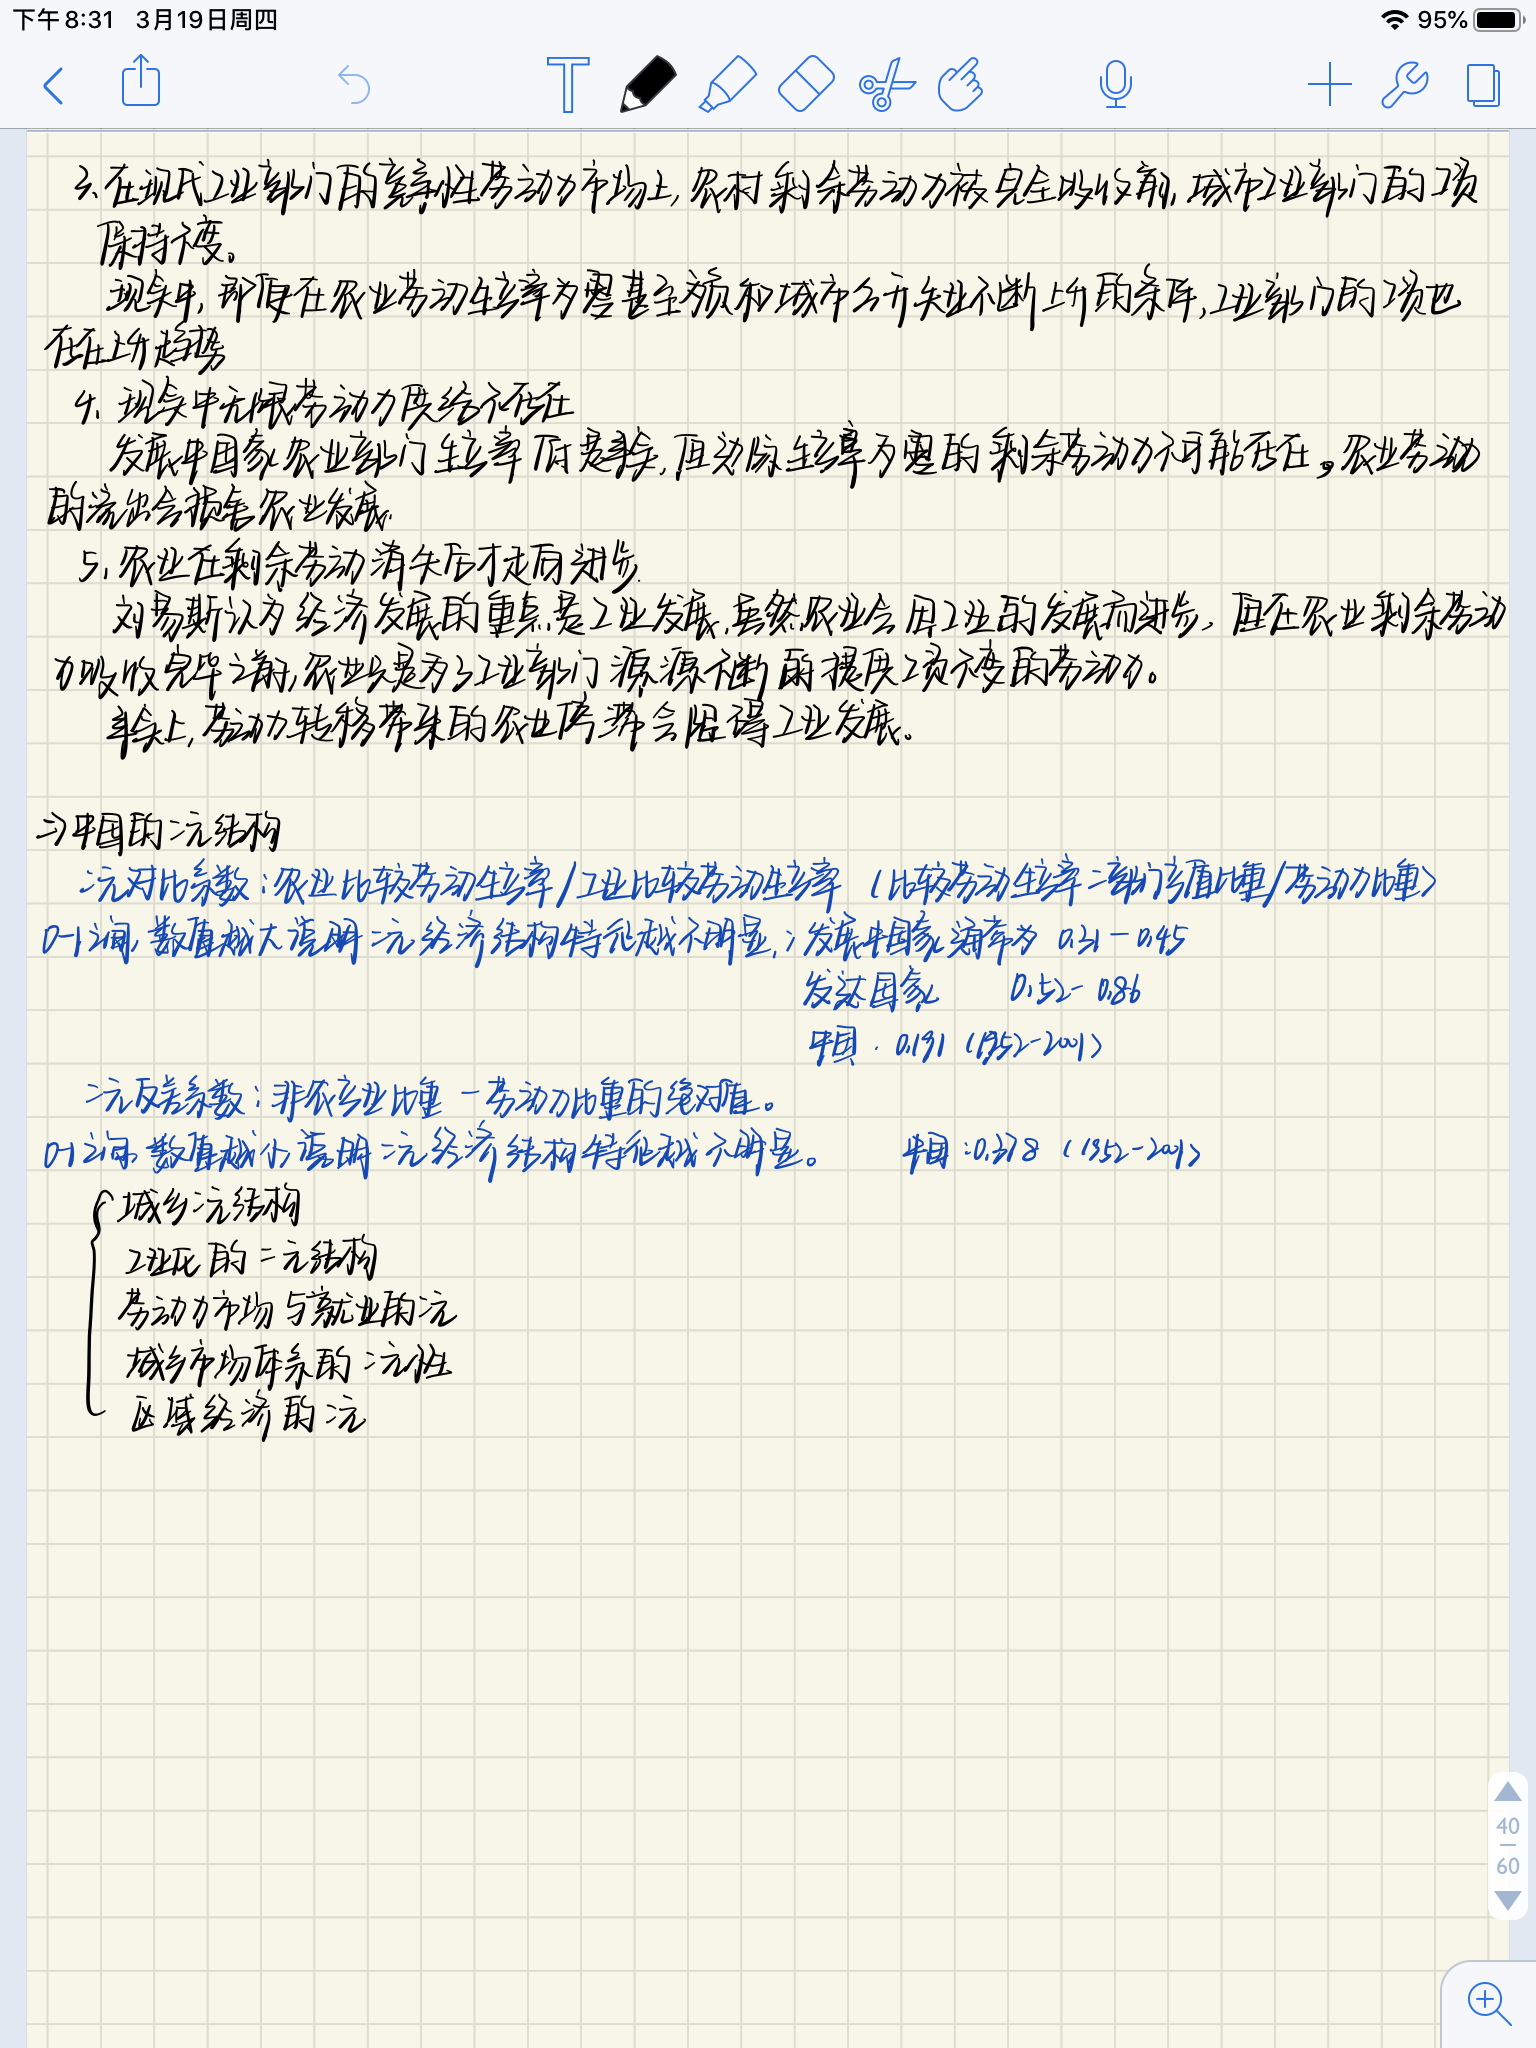 下午8:31 3月19日周四 95%
T
3、在现代工业部门的竞争性劳动力市场上,农村剩余劳动力被完全吸收前,城市工业部门的工资
保持不变。
现实中,即使在农业劳动生产率为零甚至为负和城市公开失业不断上升的条件,工业部门的工资也
存在上升趋势
4、现实中无限劳动力供给不存在
发展中国家农业部门生产率低是事实,但边际生产率为零的剩余劳动力不可能存在。农业劳动
的流出会损害农业发展.
5、农业在剩余劳动消失后才走向进步.
刘易斯认为经济发展的重点是工业发展,虽然农业会因工业的发展而进步,但在农业剩余劳动
力吸收完毕之前,农业只是为了工业部门源源不断的提供工资不变的劳动力。
事实上,劳动力转移带来的农业停滞会阻碍工业发展。
=)中国的二元结构
二元对比系数:农业比较劳动生产率/工业比较劳动生产率(比较劳动生产率=部门产值比重/劳动力比重)
0-1之间,数值越大说明二元经济结构特征越不明显,;发展中国家通常为 0.31-0.45
发达国家 0.52-0.86
中国. 0.191(1952-2001)
二元反差系数:非农产业比重-劳动力比重的绝对值。
0-1之间,数值越小,说明二元经济结构特征越不明显。 中国:0.378(1952-2001)
城乡二元结构
工业化的二元结构
劳动力市场与就业的二元
城乡市场体系的二元性
区域经济的二元
40
60